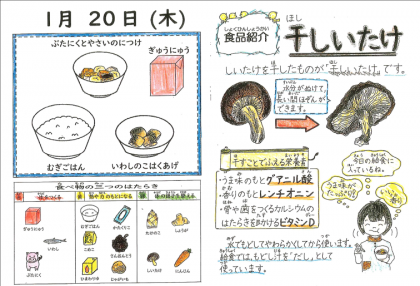 1月 20日 (木)
ぶたにくとやさいのにつけ
ぎゅうにゅう
むぎごはん
いわしのこはくあげ
食べ物の三つのはたらき
ぎゅうにゅう
いわし
ぶたにく
ごはん
かたくりこ
むぎ
こめ
さとう
でんぷん
あぶら
じゃがいも
たけのこ
しょうが
しいたけ
にんじん
しょくひんしょうかい
食品紹介
ほ
干ししいたけ
しいたけを干したものが「干ししいたけ」です。
水分がぬけて、
長い間ほぞんが
できます。
干すことでふえる栄養素
・うま味のもと グアニル酸
・香りのもと レンチオニン
・骨や歯をつくるカルシウムの
はたらきを助ける ビタミンD
今日の給食に
入っているね。
うま味が
たっぷり!
いい
香り
水でもどしてやわらかくしてから使います。
給食では、もどし汁を“だし”として
使っています。